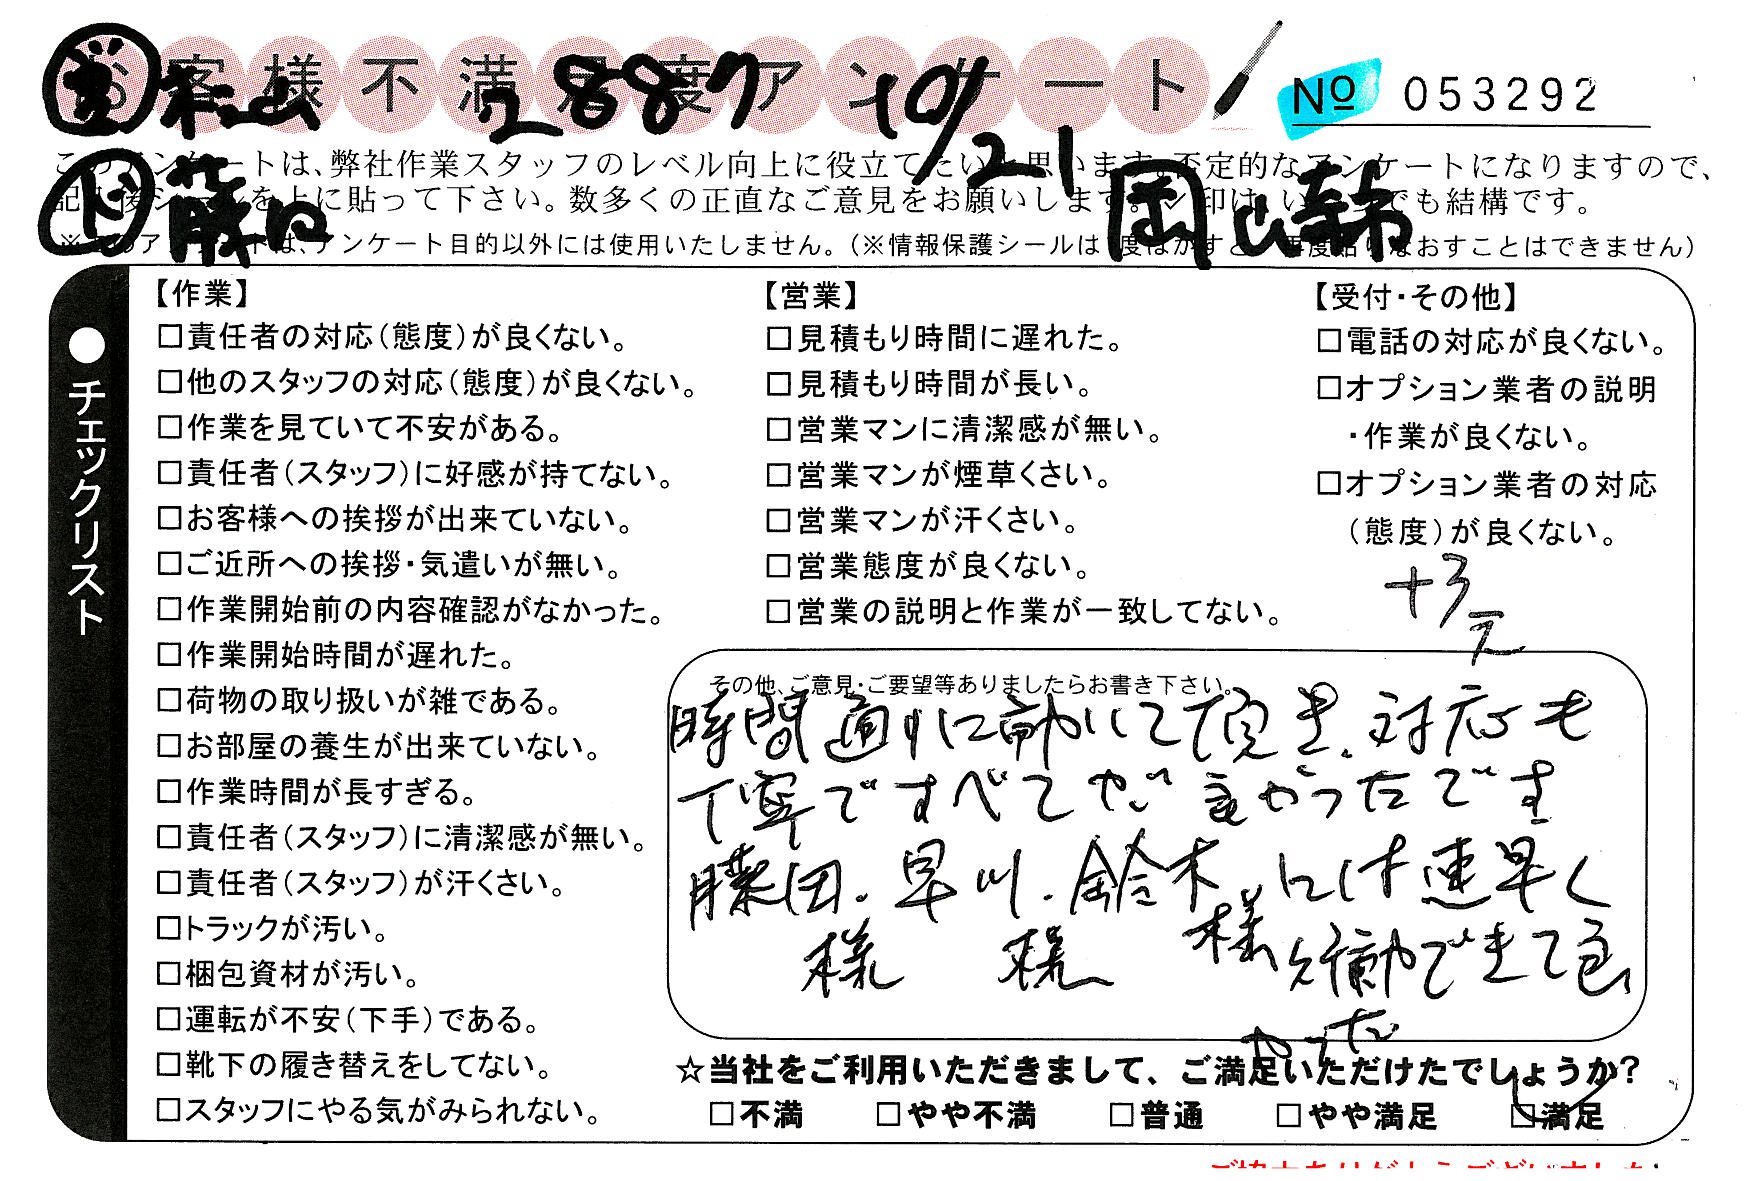 お客様不満足度アンケート
2887 10/21
No 053292
このアンケートは、弊社作業スタッフのレベル向上に役立てたいと思います。否定的なアンケートになりますので、
記入後シールを上に貼って下さい。数多くの正直なご意見をお願いします。レ印は、いくつでも結構です。
藤田
岡山
※このアンケートは、アンケート目的以外には使用いたしません。（※情報保護シールは1度はがすと、再度貼りなおすことはできません）
●チェックリスト
【作業】
□責任者の対応（態度）が良くない。
□他のスタッフの対応（態度）が良くない。
□作業を見ていて不安がある。
□責任者（スタッフ）に好感が持てない。
□お客様への挨拶が出来ていない。
□ご近所への挨拶・気遣いが無い。
□作業開始前の内容確認がなかった。
□作業開始時間が遅れた。
□荷物の取り扱いが雑である。
□お部屋の養生が出来ていない。
□作業時間が長すぎる。
□責任者（スタッフ）に清潔感が無い。
□責任者（スタッフ）が汗くさい。
□トラックが汚い。
□梱包資材が汚い。
□運転が不安（下手）である。
□靴下の履き替えをしてない。
□スタッフにやる気がみられない。
【営業】
□見積もり時間に遅れた。
□見積もり時間が長い。
□営業マンに清潔感が無い。
□営業マンが煙草くさい。
□営業マンが汗くさい。
□営業態度が良くない。
□営業の説明と作業が一致してない。
【受付・その他】
□電話の対応が良くない。
□オプション業者の説明
・作業が良くない。
□オプション業者の対応
（態度）が良くない。
+3
その他、ご意見・ご要望等ありましたらお書き下さい。
時間通りに動いて頂き、対応も
丁寧ですべてが良かったです
藤田様・早川様・鈴木様には速早く
行動できて良
かった
☆当社をご利用いただきまして、ご満足いただけたでしょうか？
□不満 □やや不満 □普通 □やや満足 □満足
ご協力ありがとうございました！